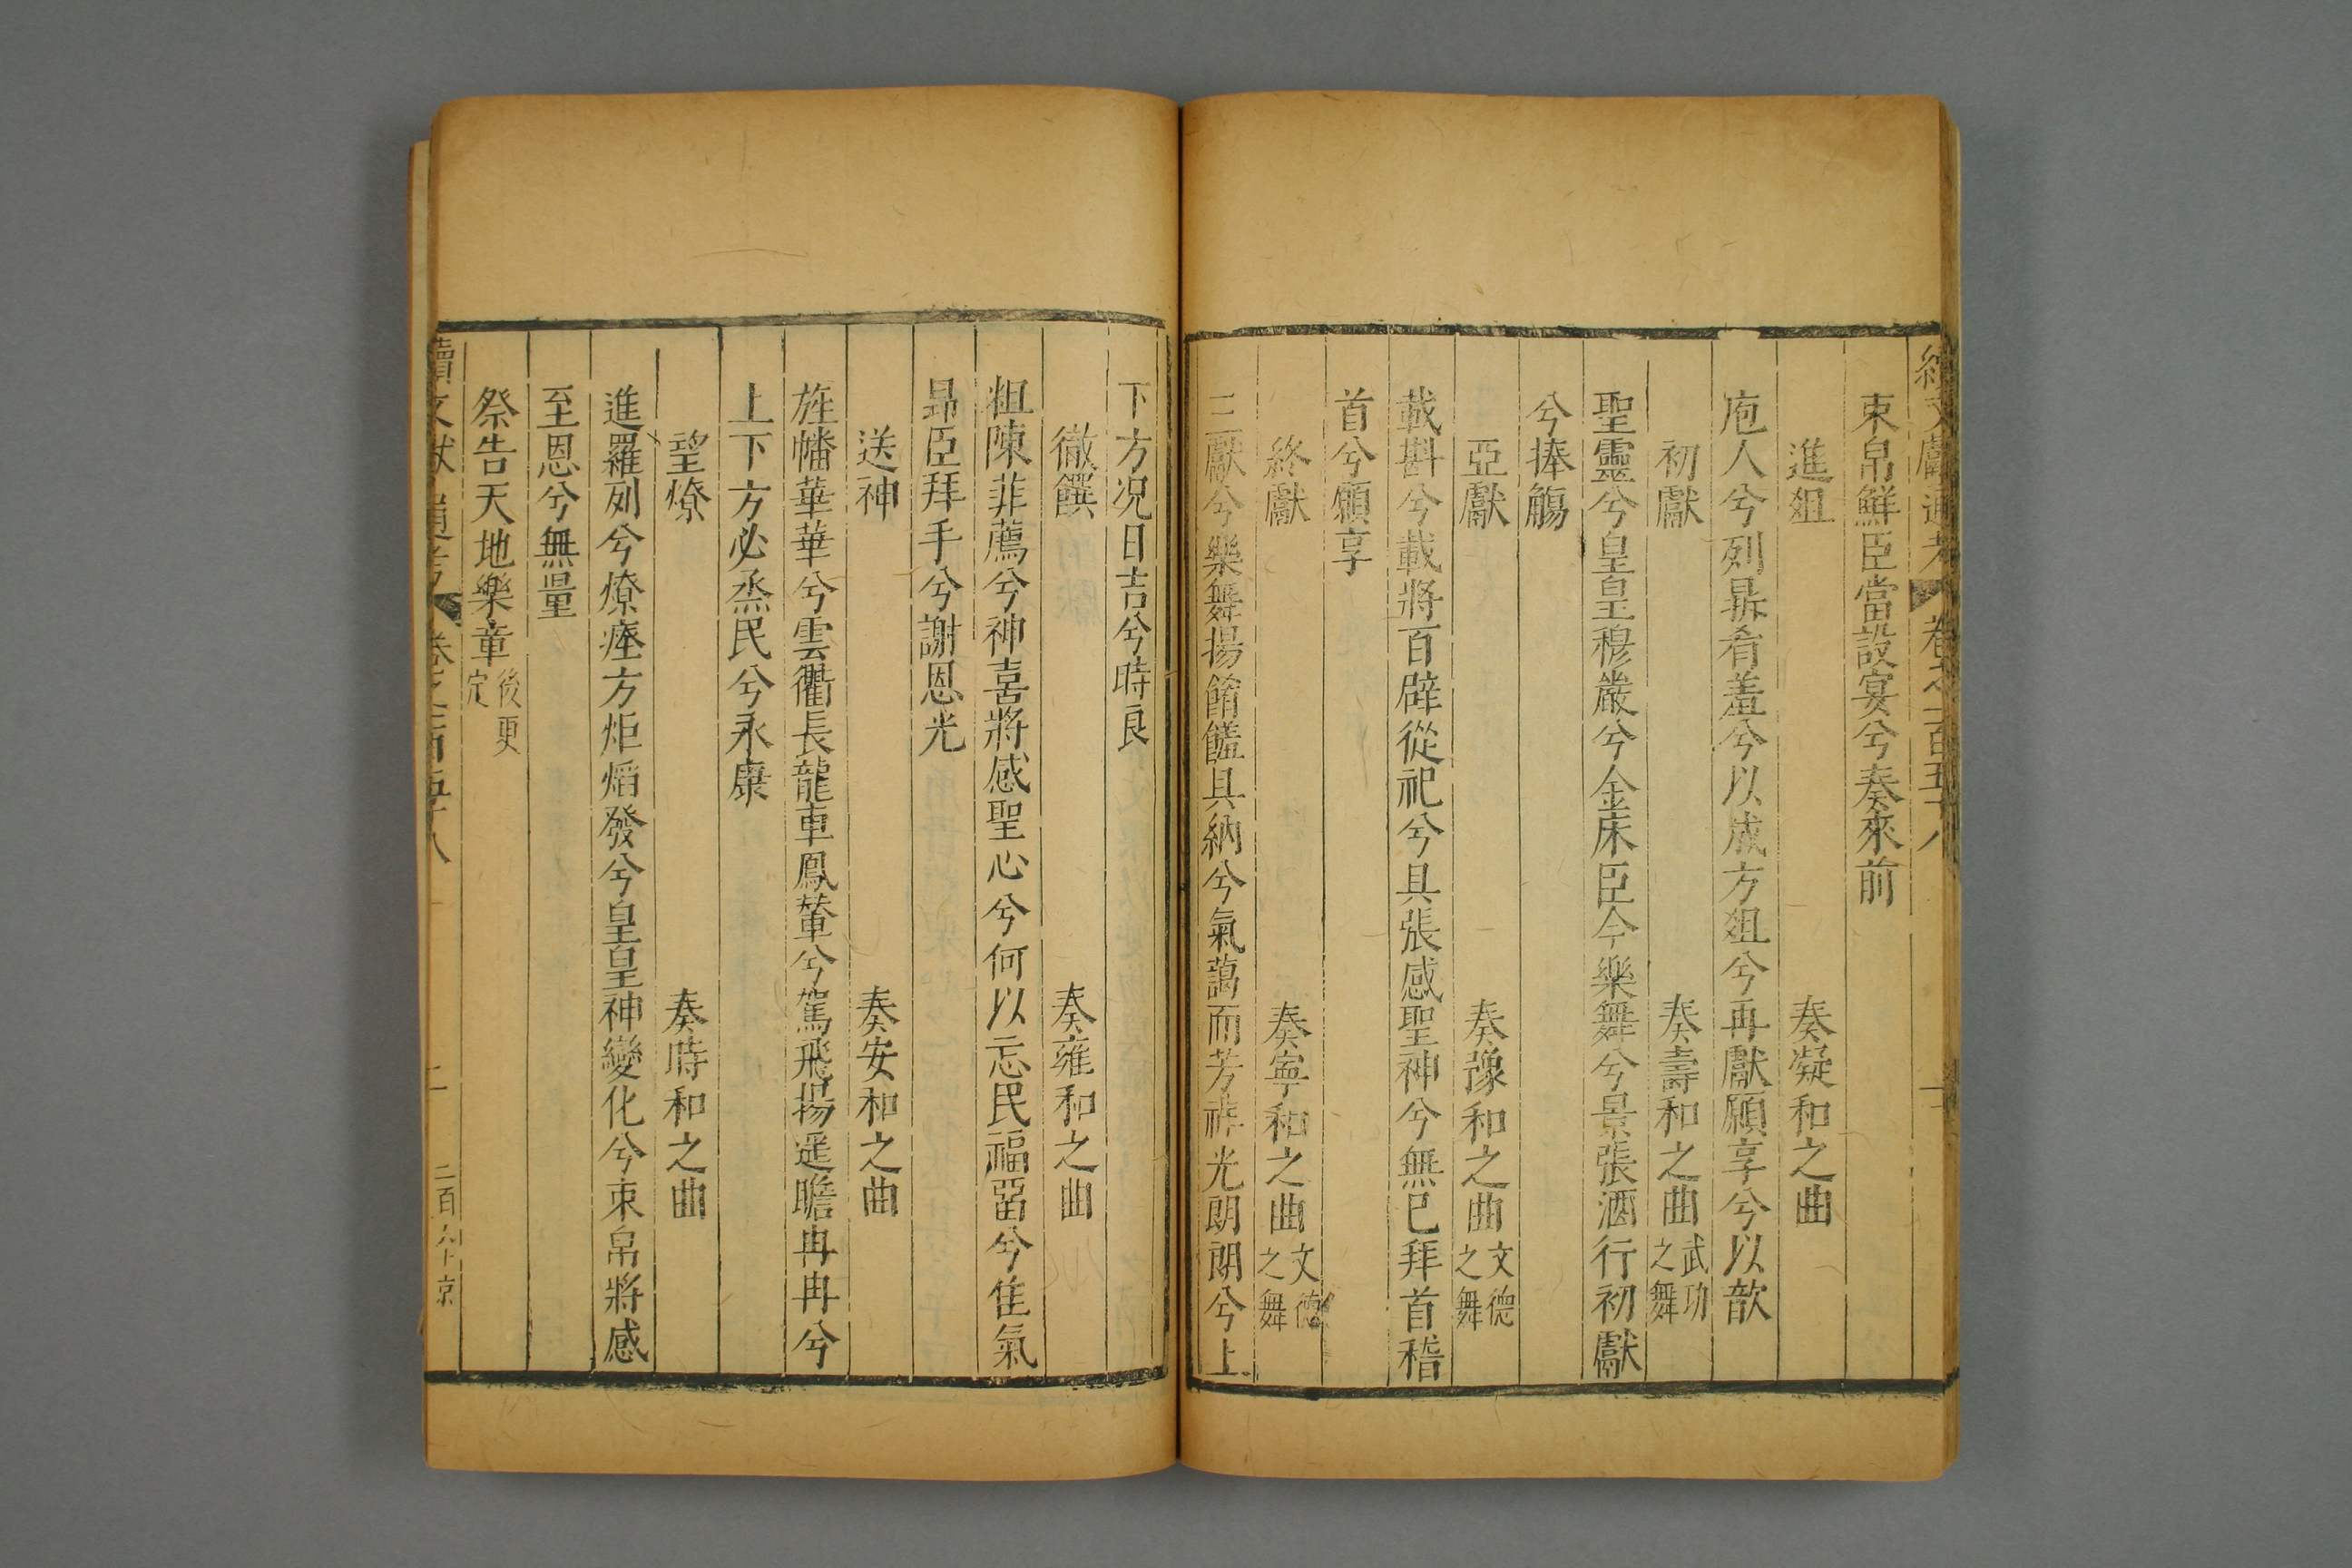 續文獻通考 卷之一百五十八
束帛鮮臣當設宴兮奏來前
進俎 奏凝和之曲
庖人兮列鼎肴羞兮以成方俎兮再獻願享兮以歆
初獻 奏壽和之曲 武功之舞
聖靈兮皇皇穆嚴兮金床臣今樂舞兮景張酒行初獻
兮捧觴
亞獻 奏豫和之曲 文德之舞
載斟兮載將百辟從祀兮具張感聖神兮無已拜首稽
首兮願享
終獻 奏寧和之曲 文德之舞
三獻兮樂舞揚餚饈具納兮氣藹而芳祥光朗朗兮上
下方况日吉兮時良
徹饌 奏雍和之曲
粗陳菲薦兮神喜將感聖心兮何以忘民福畱兮佳氣
昻臣拜手兮謝恩光
送神 奏安和之曲
旌幡華華兮雲衢長龍車鳳輦兮駕飛揚遥瞻冉冉兮
上下方必烝民兮永康
望燎 奏時和之曲
進羅列兮燎瘞方炬焰發兮皇皇神變化兮束帛將感
至恩兮無量
祭告天地樂章 後更定
續文獻通考 卷之一百五十八 二